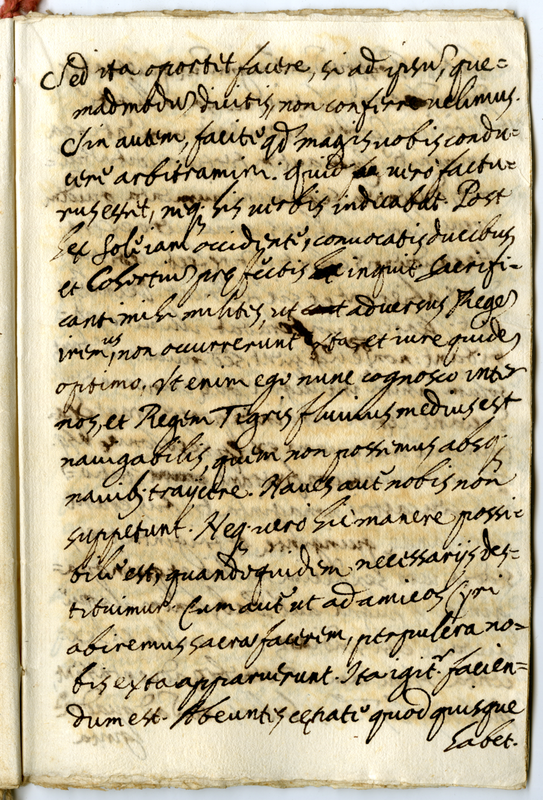 Sed ita oportet facere, si ad ipsũ, que=
madmodũ dicitis, non conferre uelimus.
Sin autem, facitẽ qđ magis uobis condu-
cere arbitramini. Quid uero factu-
rus esset, neq. his uerbis indicabat. Post
hec Solẽ iam occidentẽ, conuocatis ducibus
et Cohortiũ prefectis inquit Sacrifi-
canti mihi milites, ut aduersus Regẽ
iremus, non occurrerunt exta, et iure quidẽ
optimo. Vt enim ego nunc cognosco inter
nos, et Regem Tigris fluuius medius est
nauigabilis, quem non possumus absq.
nauib. traijcere. Naues autẽ nobis non
suppetunt. Neq. uero hic manere possi-
bile est, quandoquidem necessarijs des-
tituimur. Cum autẽ ut ad amicos Cyri
abiremus sacra facerem, perpulcra no-
bis exta apparuerunt. Ita igit.ʳ facien-
dum est. Abeuntis cenate quod quisque
habet.